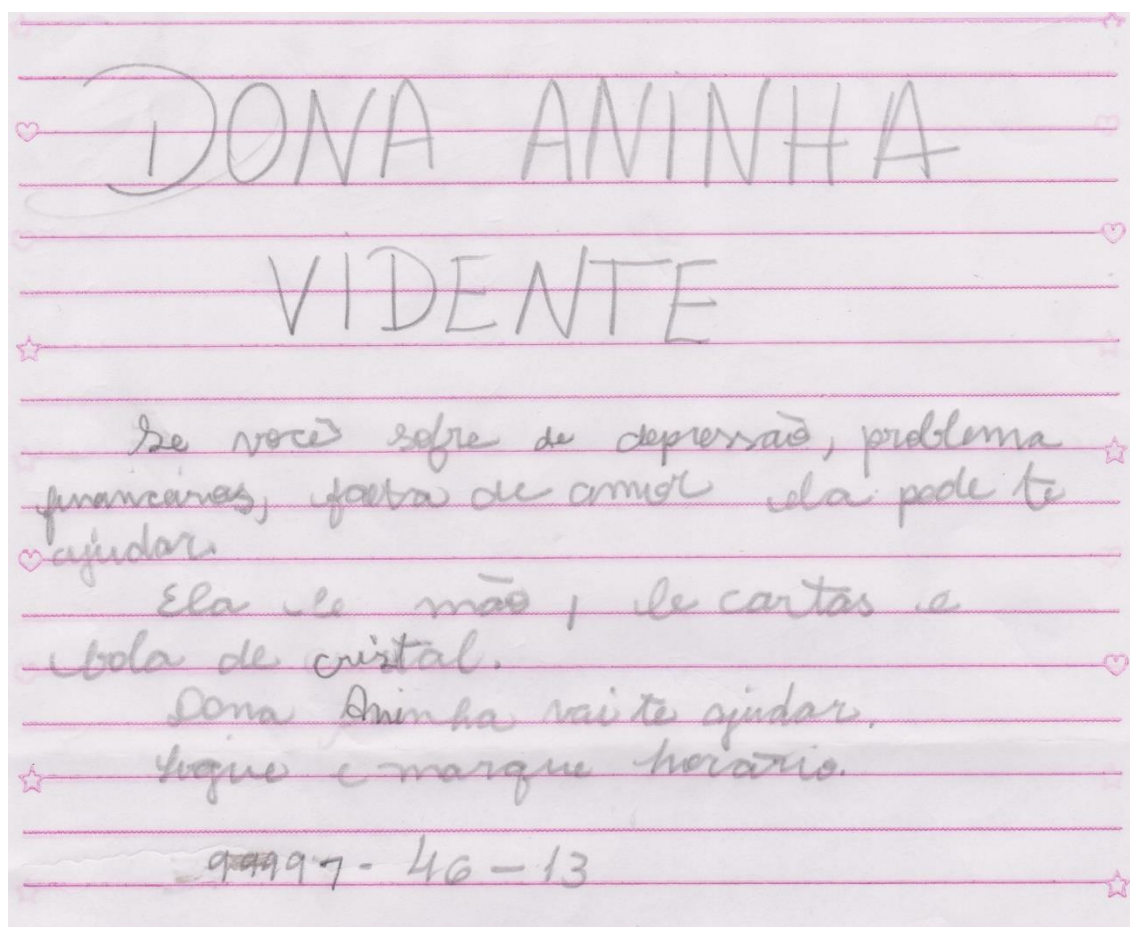 DONA ANINHA
VIDENTE
Se você sofre de depressão, problema
financeiros, falta de amor ela pode te
ajudar.
Ela le mão, le cartas e
bola de cristal.
Dona Aninha vai te ajudar.
Ligue e marque horário.
99997-46-13